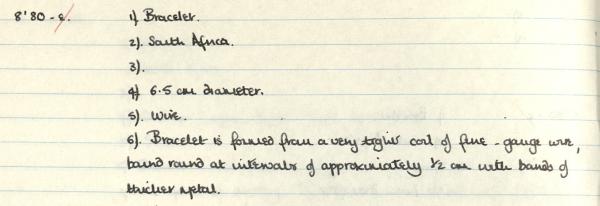 8'80 - c. 1) Bracelet.
2). South Africa.
3).
4) 6.5 cm diameter.
5). Wire.
6). Bracelet is formed from a very tight coil of fine-gauge wire,
bound round at intervals of approximately ½ cm with bands of
thicker metal.